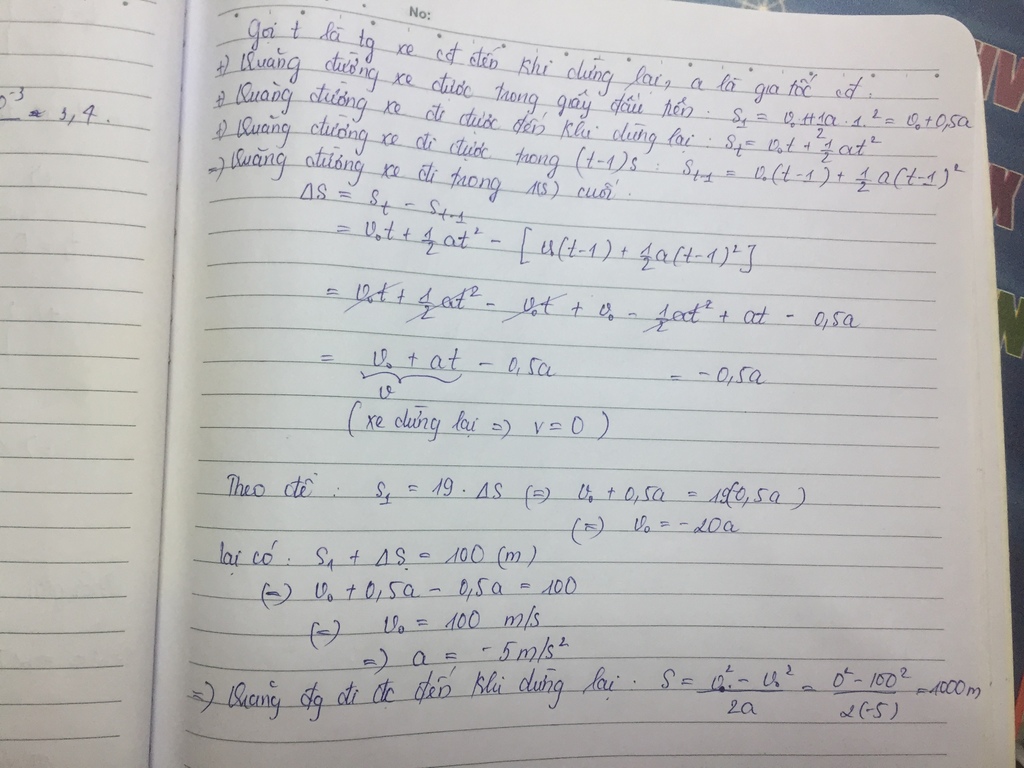 No:
0⁻³ ≈ 3,4.
Gọi t là tg xe cđ đến khi dừng lại, a là gia tốc cđ.
+) Quãng đường xe được trong giây đầu tiên: S₁ = v₀.1 + 1/2 a.1² = v₀ + 0,5a
+) Quãng đường xe đi được đến khi dừng lại: Sₜ = v₀t + 1/2 at²
+) Quãng đường xe đi được trong (t-1)s: Sₜ₋₁ = v₀(t-1) + 1/2 a(t-1)²
=) Quãng đường xe đi trong 1(s) cuối:
ΔS = Sₜ - Sₜ₋₁
= v₀t + 1/2 at² - [v₀(t-1) + 1/2 a(t-1)²]
= v₀t + 1/2 at² - v₀t + v₀ - 1/2 at² + at - 0,5a
= v₀ + at - 0,5a = -0,5a
v
(xe dừng lại =) v = 0)
Theo đề: S₁ = 19.ΔS (=) v₀ + 0,5a = 19(-0,5a)
(=) v₀ = -20a
lại có: S₁ + ΔS = 100 (m)
(=) v₀ + 0,5a - 0,5a = 100
(=) v₀ = 100 m/s
=) a = -5m/s²
=) Quãng đg đi đc đến khi dừng lại: S = v² - v₀² / 2a = 0² - 100² / 2(-5) = 1000m